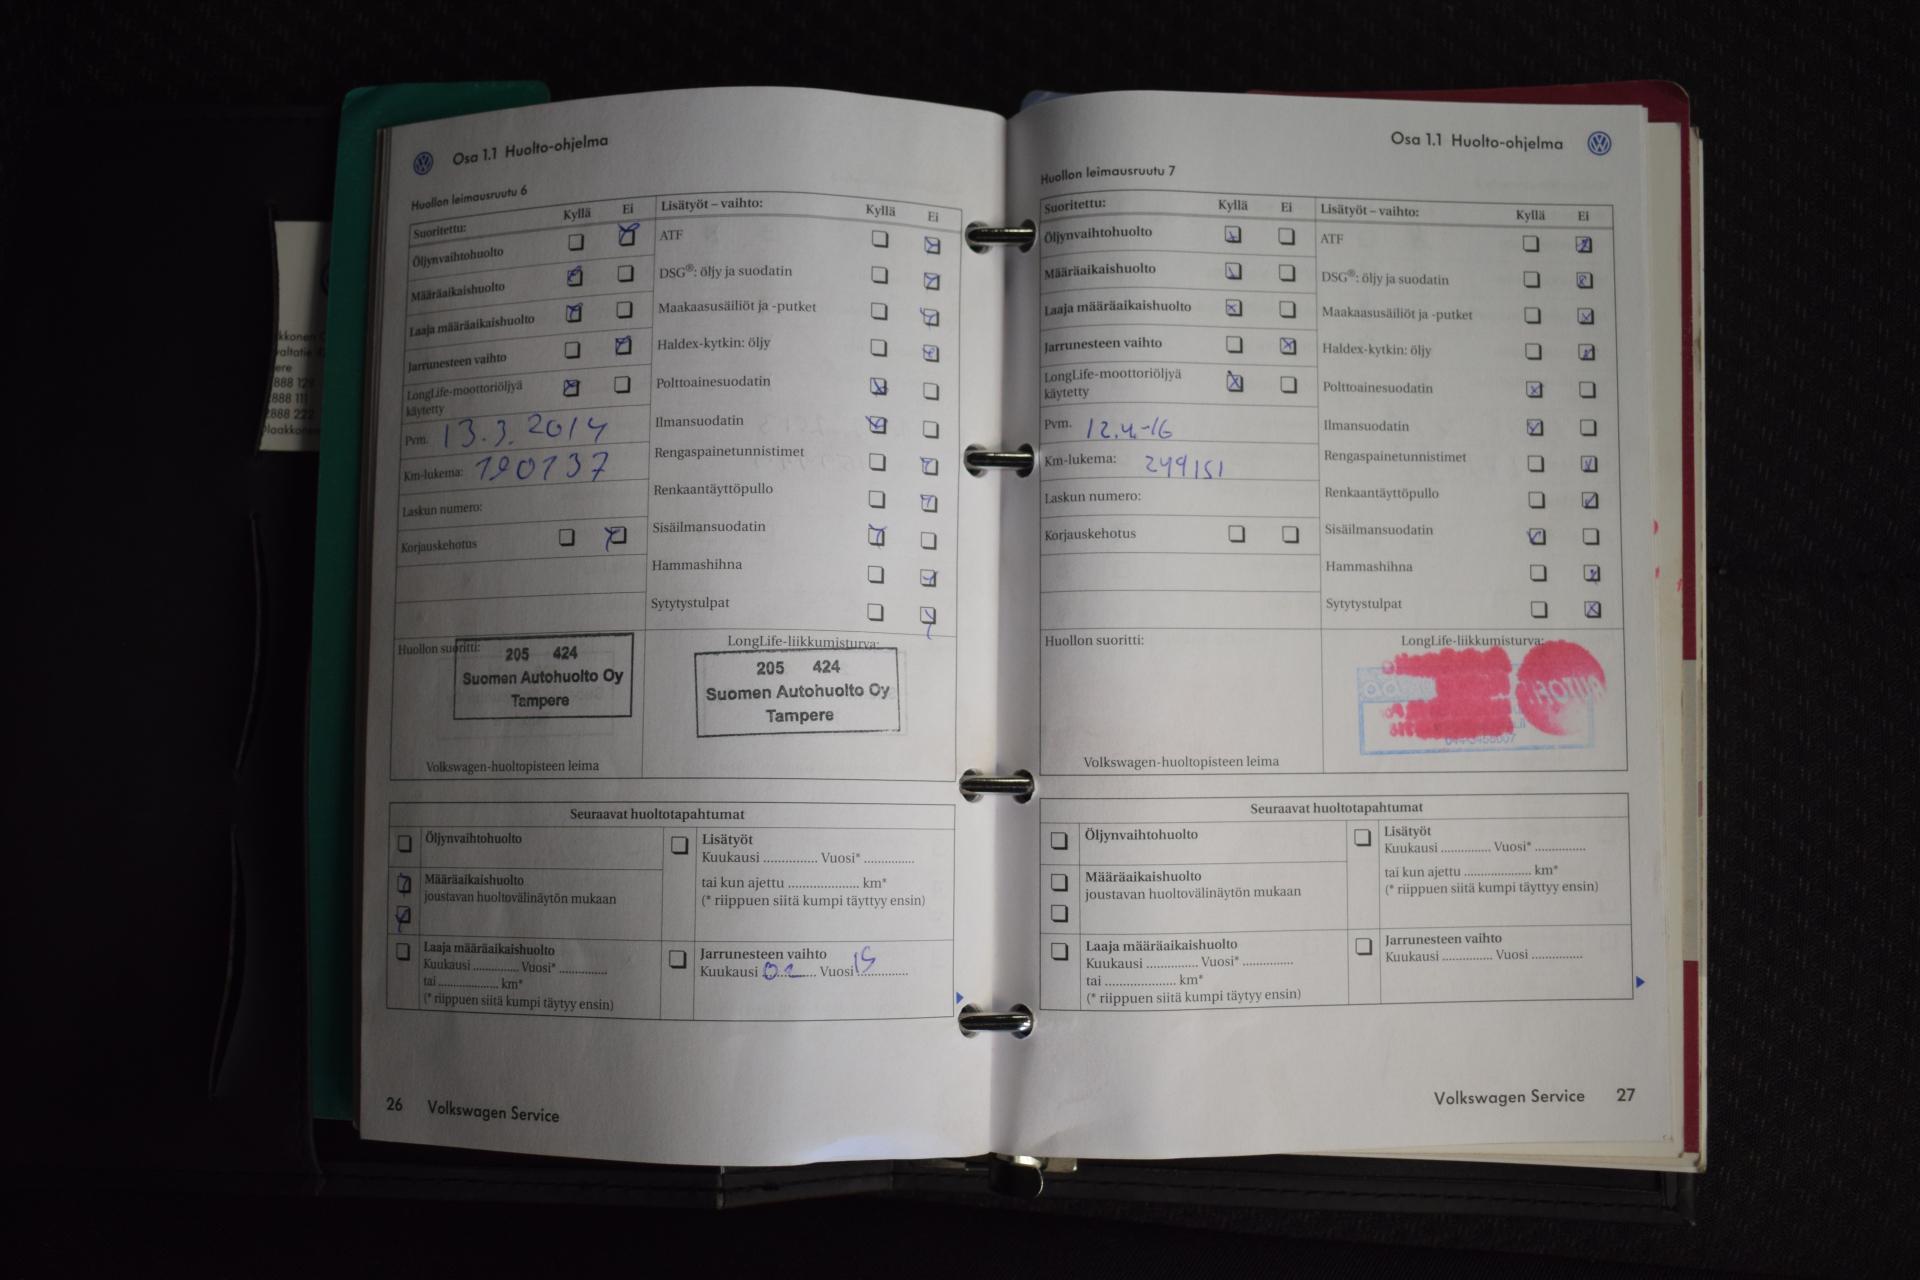 Osa 1.1 Huolto-ohjelma
Huollon leimausruutu 6
Suoritettu: Kyllä Ei
Öljynvaihtohuolto
Määräaikaishuolto
Laaja määräaikaishuolto
Jarrunesteen vaihto
LongLife-moottoriöljyä
käytetty
Pvm. 13.3.2014
Km-lukema: 190137
Laskun numero:
Korjauskehotus
Lisätyöt – vaihto: Kyllä Ei
ATF
DSG®: öljy ja suodatin
Maakaasusäiliöt ja -putket
Haldex-kytkin: öljy
Polttoainesuodatin
Ilmansuodatin
Rengaspainetunnistimet
Renkaantäyttöpullo
Sisäilmansuodatin
Hammashihna
Sytytystulpat
Huollon suoritti:
205 424
Suomen Autohuolto Oy
Tampere
Volkswagen-huoltopisteen leima
LongLife-liikkumisturva:
205 424
Suomen Autohuolto Oy
Tampere
Seuraavat huoltotapahtumat
Öljynvaihtohuolto
Määräaikaishuolto
joustavan huoltovälinäytön mukaan
Laaja määräaikaishuolto
Kuukausi .............. Vuosi* ..............
tai .................... km*
(* riippuen siitä kumpi täytyy ensin)
Lisätyöt
Kuukausi ............... Vuosi* ..............
tai kun ajettu .................... km*
(* riippuen siitä kumpi täyttyy ensin)
Jarrunesteen vaihto
Kuukausi 02 Vuosi 15
26 Volkswagen Service
Osa 1.1 Huolto-ohjelma
Huollon leimausruutu 7
Suoritettu: Kyllä Ei
Öljynvaihtohuolto
Määräaikaishuolto
Laaja määräaikaishuolto
Jarrunesteen vaihto
LongLife-moottoriöljyä
käytetty
Pvm. 12.4.-16
Km-lukema: 249151
Laskun numero:
Korjauskehotus
Lisätyöt – vaihto: Kyllä Ei
ATF
DSG®: öljy ja suodatin
Maakaasusäiliöt ja -putket
Haldex-kytkin: öljy
Polttoainesuodatin
Ilmansuodatin
Rengaspainetunnistimet
Renkaantäyttöpullo
Sisäilmansuodatin
Hammashihna
Sytytystulpat
Huollon suoritti:
Volkswagen-huoltopisteen leima
LongLife-liikkumisturva:
Seuraavat huoltotapahtumat
Öljynvaihtohuolto
Määräaikaishuolto
joustavan huoltovälinäytön mukaan
Laaja määräaikaishuolto
Kuukausi .............. Vuosi* ..............
tai .................... km*
(* riippuen siitä kumpi täytyy ensin)
Lisätyöt
Kuukausi .............. Vuosi* ..............
tai kun ajettu .................... km*
(* riippuen siitä kumpi täyttyy ensin)
Jarrunesteen vaihto
Kuukausi .............. Vuosi ..............
Volkswagen Service 27